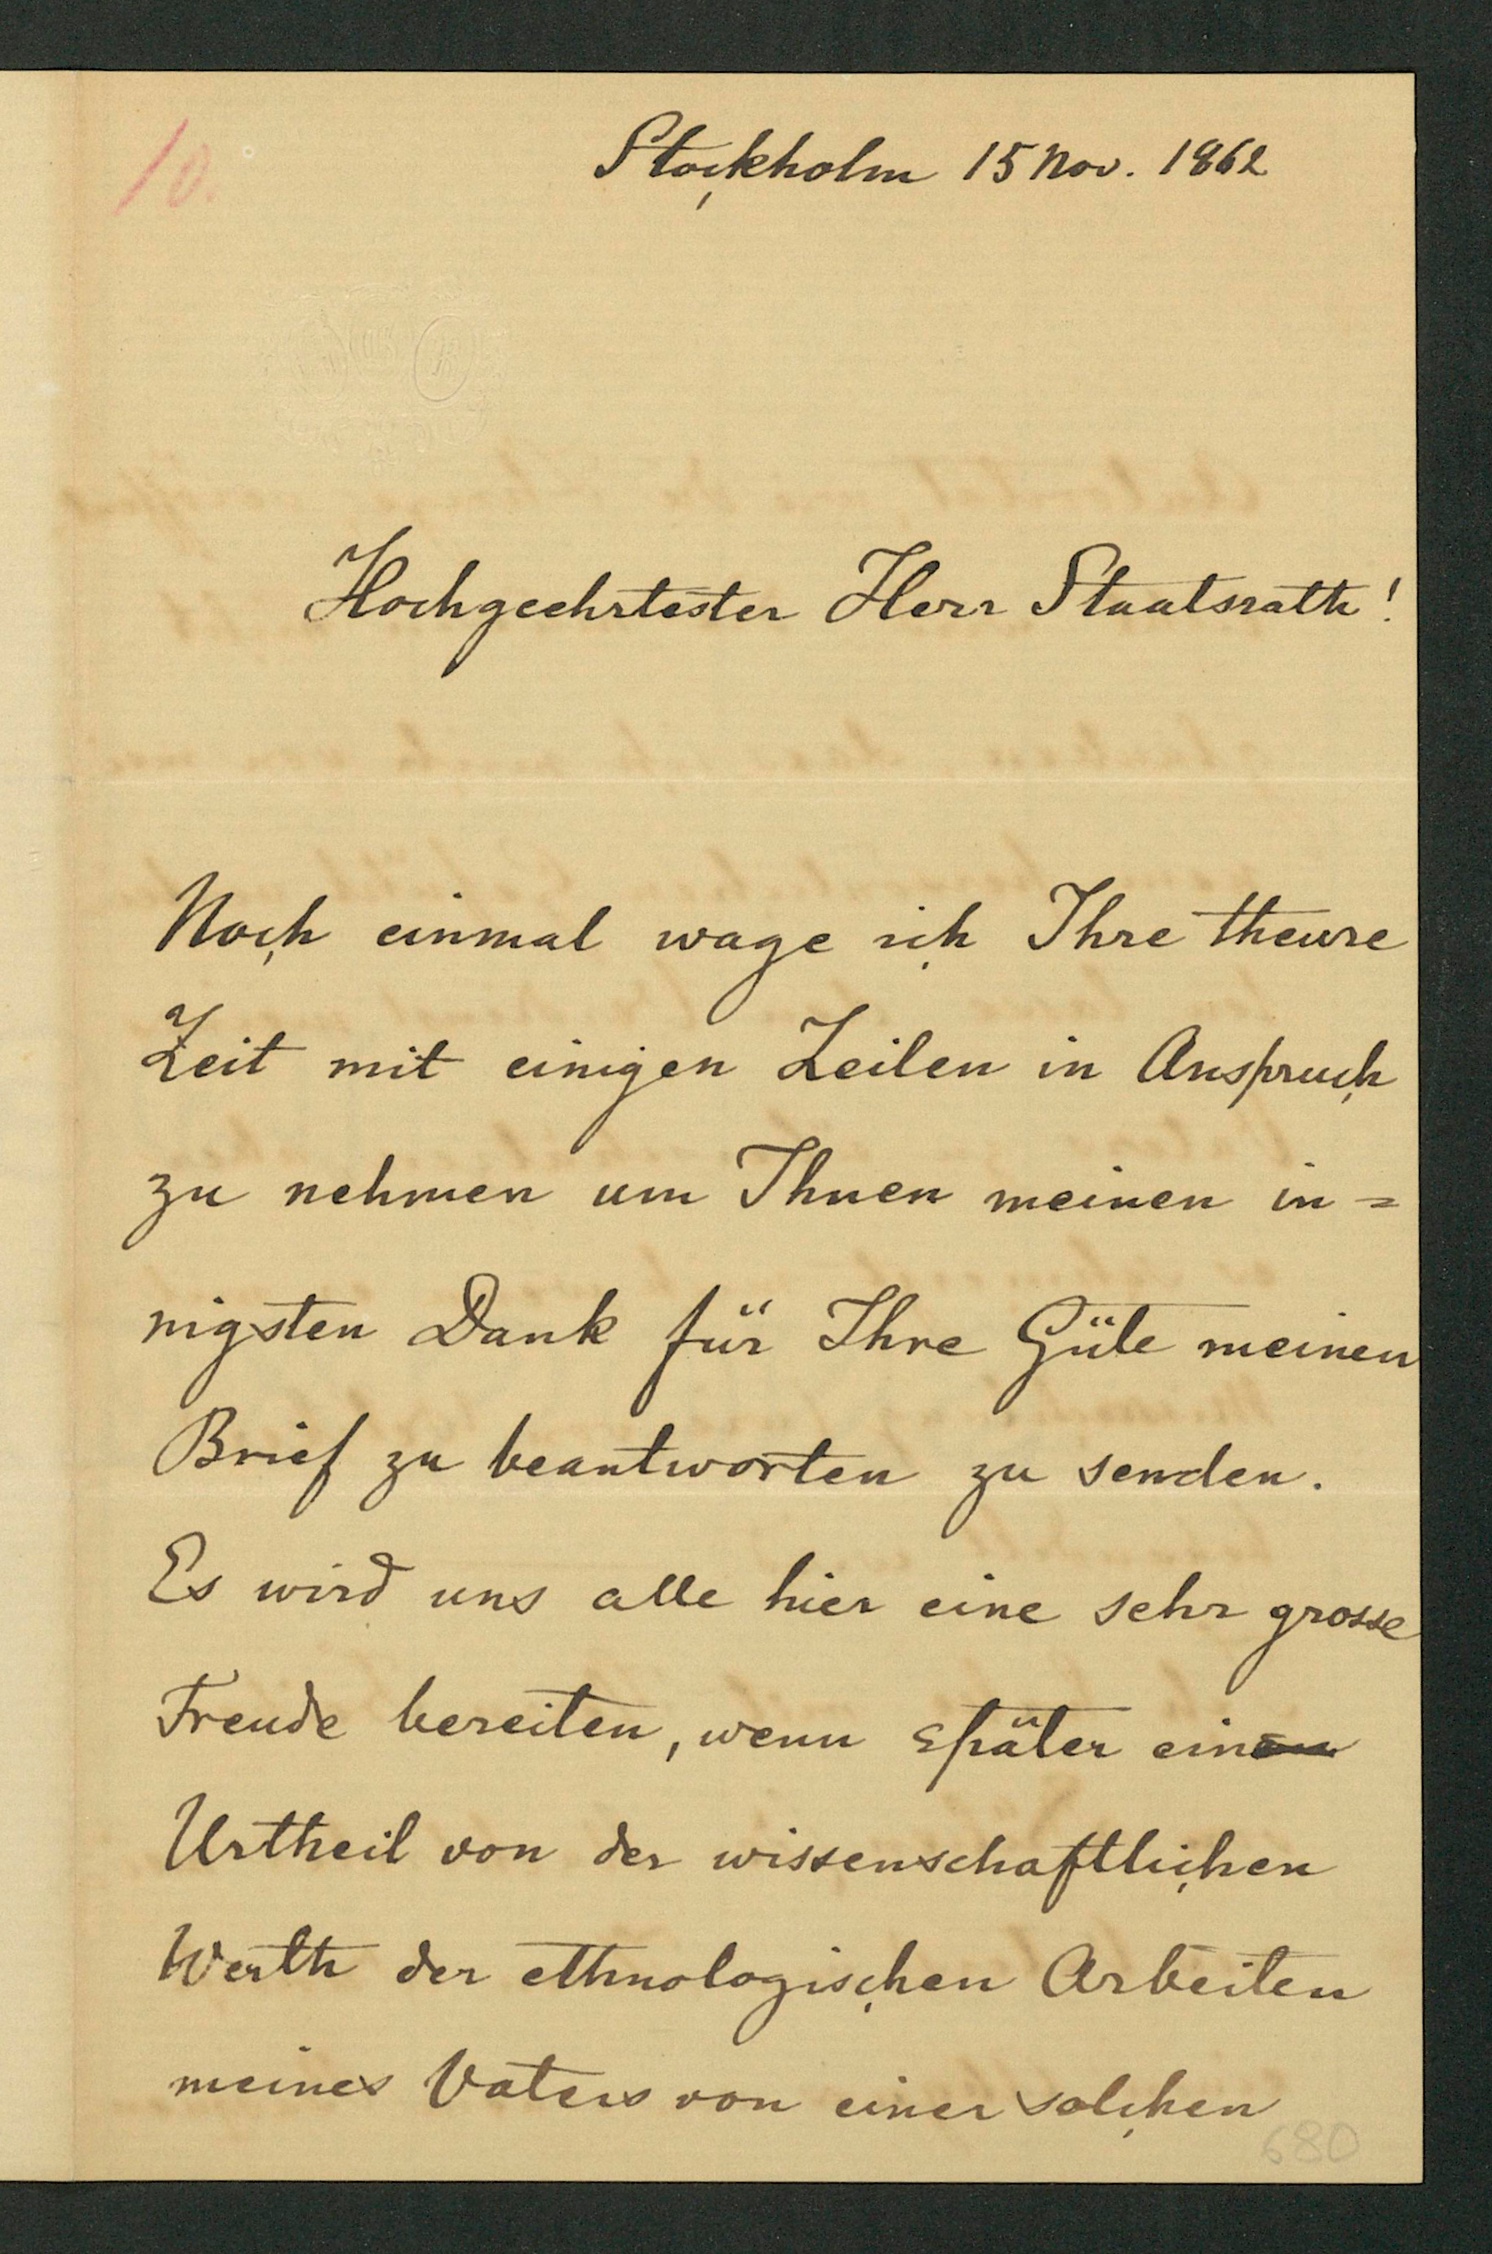 10.
Stockholm 15 Nov. 1862
Hochgeehrtester Herr Staatsrath!
Noch einmal wage ich Ihre theure
Zeit mit einigen Zeilen in Anspruch
zu nehmen um Ihnen meinen in=
nigsten Dank für Ihre Güte meinen
Brief zu beantworten zu senden.
Es wird uns alle hier eine sehr grosse
Freude bereiten, wenn später ein
Urtheil von der wissenschaftlichen
Werth der ethnologischen Arbeiten
meines Vaters von einer solchen
680